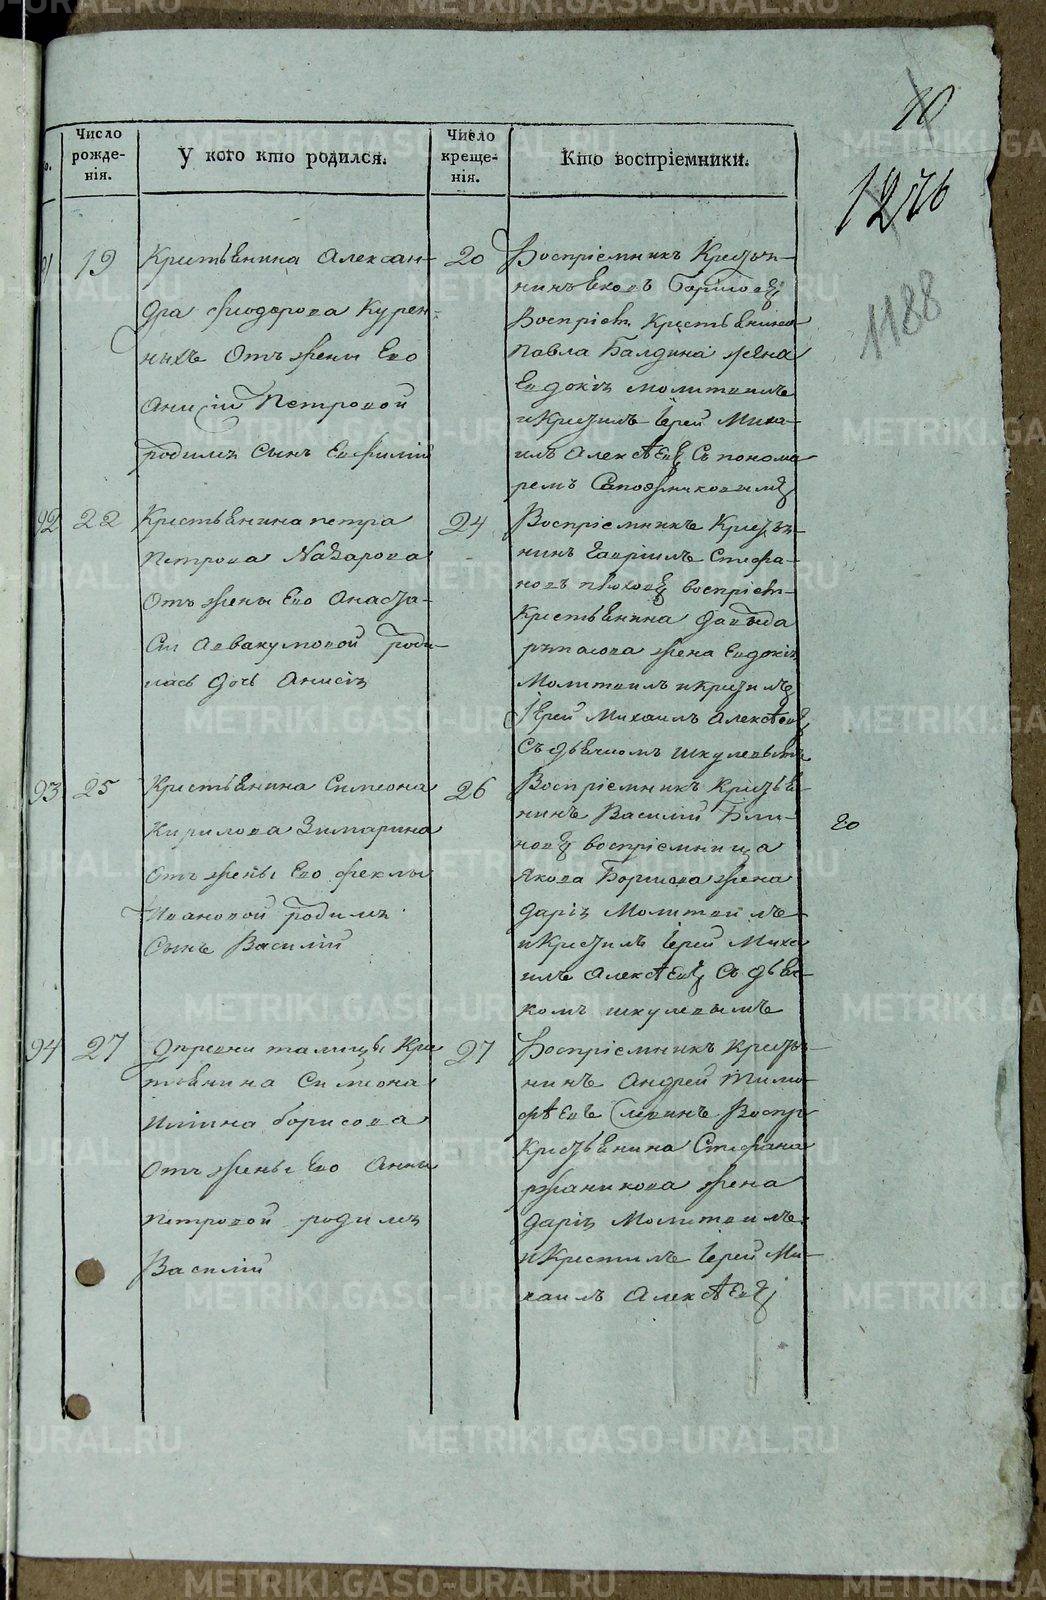 10
1276
1188
Число рожде-нія.
У кого кто родился.
Число креще-нія.
Кто воспріемники.
91
19
Крестьянина Алексан-
дра Фиодорова Курен-
ныхъ Отъ жены Его
Анисіи Петровой
родился Сынъ Евфимій
20
Воспріемникъ Кресть-
нинъ Яковъ
Воспріем Крестьянина
Павла Балдина жена
Евдокія молитвилъ
и Крестилъ Іерей Миха-
илъ Алексѣевъ Съ понома
ремъ Сапожниковымъ
92
22
Крестьянина петра
Петрова Назарова
Отъ жены Его Анаста-
Сіи Аввакумовой роди-
лась дочь Анисія
24
Воспріемникъ Кресть-
нинъ Гавріилъ Стефа-
новъ воспріем-
Крестьянина давыда
жена Евдокія
Молитвилъ и Крестилъ
Іерей Михаилъ Алексѣевъ
Съ дьячкомъ шкулевымъ
93
25
Крестьянина Симеона
Кирилова Зимарина
Отъ жены Его феклы
Ивановой родился
Сынъ Василій
26
Воспріемникъ Крестья-
нинъ Василій Бли-
новъ воспріемница
Якова жена
Дарія Молитвилъ
и Крестилъ Іерей Миха
илъ Алексѣевъ Съ дьяч-
комъ шкулевымъ
20
94
27
Деревни талицы Кре
тьянина Симеона
Ильина борисова
Отъ жены Его Анны
петровой родился
Василій
27
Воспріемникъ Кресть-
нинъ Андрей Тимо-
фѣевъ Слепинъ Воспр
Крестьянина Стефана
ржаникова жена
Дарія Молитвилъ
и Крестилъ Іерей Ми-
хаилъ Алексѣевъ
METRIKI.GASO-URAL.RU